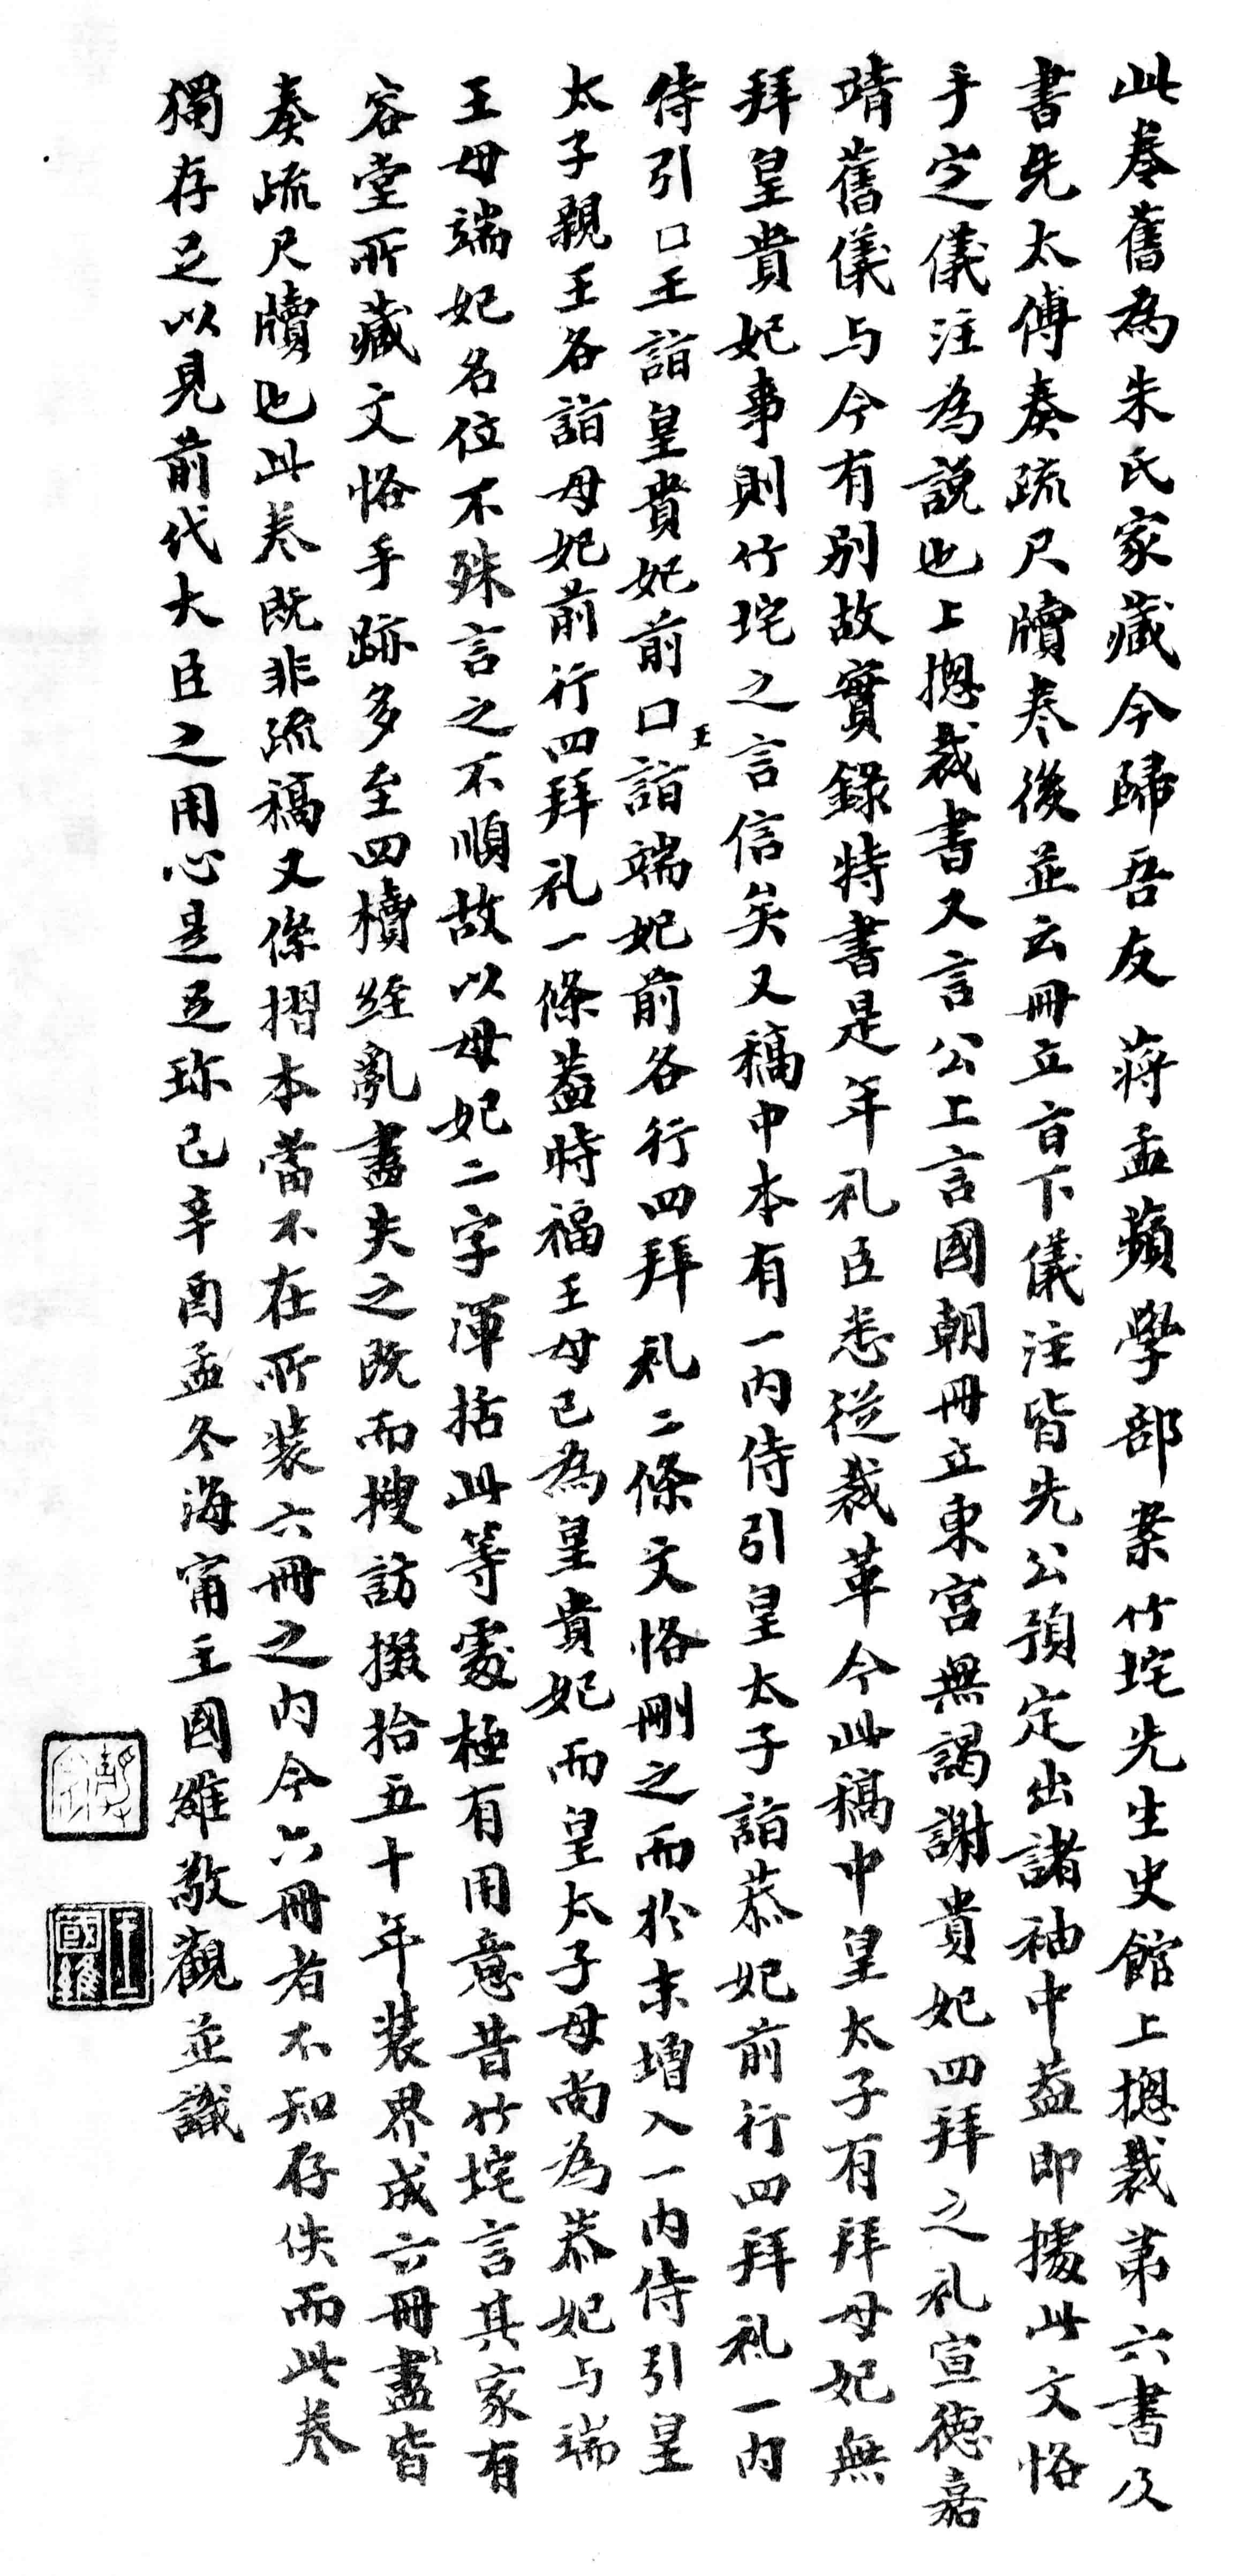 此卷舊為朱氏家藏今歸吾友　蔣孟蘋學部案竹垞先生史館上摠裁第六書及
書先太傅奏疏尺牘卷後並云冊立旨下儀注皆先公預定出諸袖中葢即據此文恪
手定儀注為説也上摠裁書又言公上言國朝冊立東宮無謁謝貴妃四拜之礼宣德嘉
靖舊儀与今有别故實錄特書是年礼臣悉從裁革今此稿中皇太子有拜母妃無
拜皇貴妃事則竹垞之言信矣又稿中本有一内侍引皇太子詣恭妃前行四拜礼一内
侍引口王詣皇貴妃前口王詣端妃前各行四拜礼二條文恪刪之而於末增入一内侍引皇
太子親王各詣母妃前行四拜礼一條葢時福王母已為皇貴妃而皇太子母尚為恭妃与瑞
王母端妃名位不殊言之不順故以母妃二字渾括此等處極有用意昔竹垞言其家有
容堂所藏文恪手跡多至四櫝經亂盡失之既而搜訪掇拾五十年裝界成六冊盡皆
奏疏尺牘也此卷既非疏稿又係摺本當不在所裝六冊之内今六冊者不知存佚而此卷
獨存足以見前代大臣之用心是足珎已辛酉孟冬海甯王國維敬觀並識
王國維